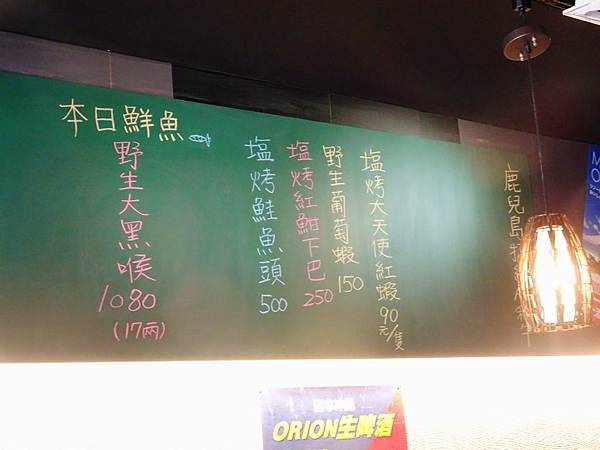 本日鮮魚
野生大黑喉
1080
(17兩)
塩烤鮭魚頭
500
塩烤紅魽下巴
250
野生葡萄蝦
150
塩烤大天使紅蝦
90元/隻
鹿兒島
ORION生啤酒